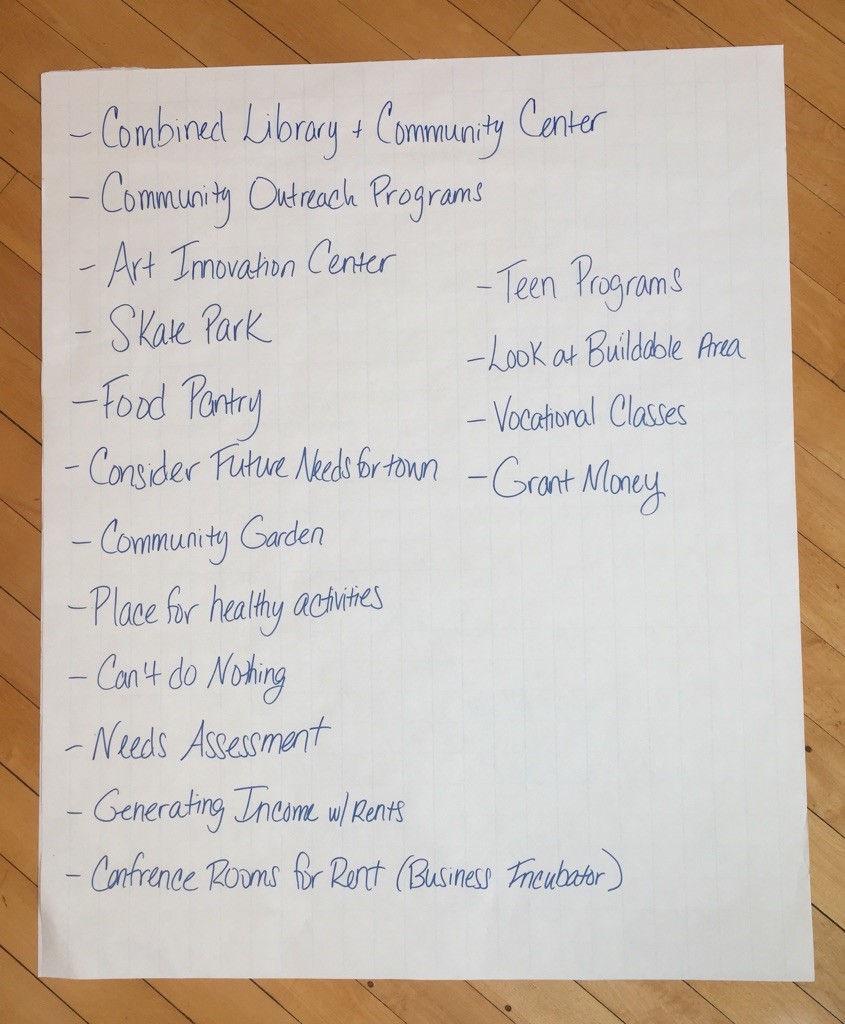 - Combined Library + Community Center
- Community Outreach Programs
- Art Innovation Center
- Skate Park
- Food Pantry
- Consider Future Needs for town
- Community Garden
- Place for healthy activities
- Can't do Nothing
- Needs Assessment
- Generating Income w/ Rents
- Confrence Rooms for Rent (Business Incubator)
- Teen Programs
- Look at Buildable Area
- Vocational Classes
- Grant Money